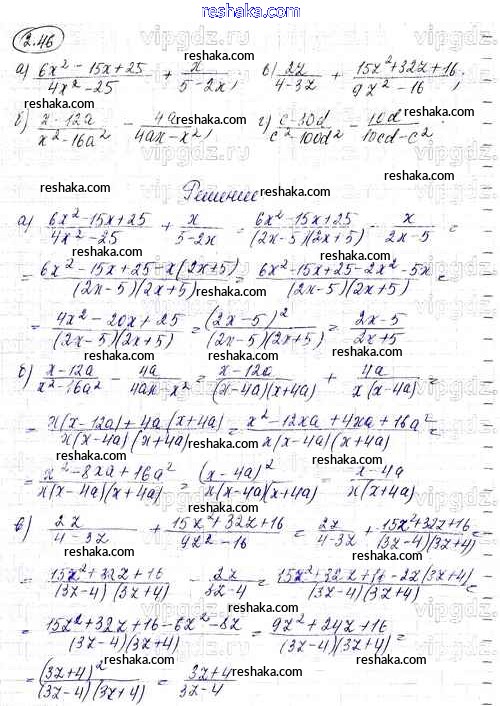 2.46
а) (6x² - 15x + 25)/(4x² - 25) + x/(5 - 2x), в) 2z/(4 - 3z) + (15z² + 32z + 16)/(9z² - 16),
б) (x - 12a)/(x² - 16a²) - 4a/(4ax - x²), г) (c - 30d)/(c² - 100d²) - 10d/(10cd - c²)
Решение
а) (6x² - 15x + 25)/(4x² - 25) + x/(5 - 2x) = (6x² - 15x + 25)/((2x - 5)(2x + 5)) - x/(2x - 5) =
= (6x² - 15x + 25 - x(2x + 5))/((2x - 5)(2x + 5)) = (6x² - 15x + 25 - 2x² - 5x)/((2x - 5)(2x + 5)) =
= (4x² - 20x + 25)/((2x - 5)(2x + 5)) = (2x - 5)²/((2x - 5)(2x + 5)) = (2x - 5)/(2x + 5)
б) (x - 12a)/(x² - 16a²) - 4a/(4ax - x²) = (x - 12a)/((x - 4a)(x + 4a)) + 4a/(x(x - 4a)) =
= (x(x - 12a) + 4a(x + 4a))/(x(x - 4a)(x + 4a)) = (x² - 12xa + 4xa + 16a²)/(x(x - 4a)(x + 4a)) =
= (x² - 8xa + 16a²)/(x(x - 4a)(x + 4a)) = (x - 4a)²/(x(x - 4a)(x + 4a)) = (x - 4a)/(x(x + 4a))
в) 2z/(4 - 3z) + (15z² + 32z + 16)/(9z² - 16) = 2z/(4 - 3z) + (15z² + 32z + 16)/((3z - 4)(3z + 4)) =
= (15z² + 32z + 16)/((3z - 4)(3z + 4)) - 2z/(3z - 4) = (15z² + 32z + 16 - 2z(3z + 4))/((3z - 4)(3z + 4)) =
= (15z² + 32z + 16 - 6z² - 8z)/((3z - 4)(3z + 4)) = (9z² + 24z + 16)/((3z - 4)(3z + 4)) =
= (3z + 4)²/((3z - 4)(3z + 4)) = (3z + 4)/(3z - 4)
reshaka.com
vipgdz.ru